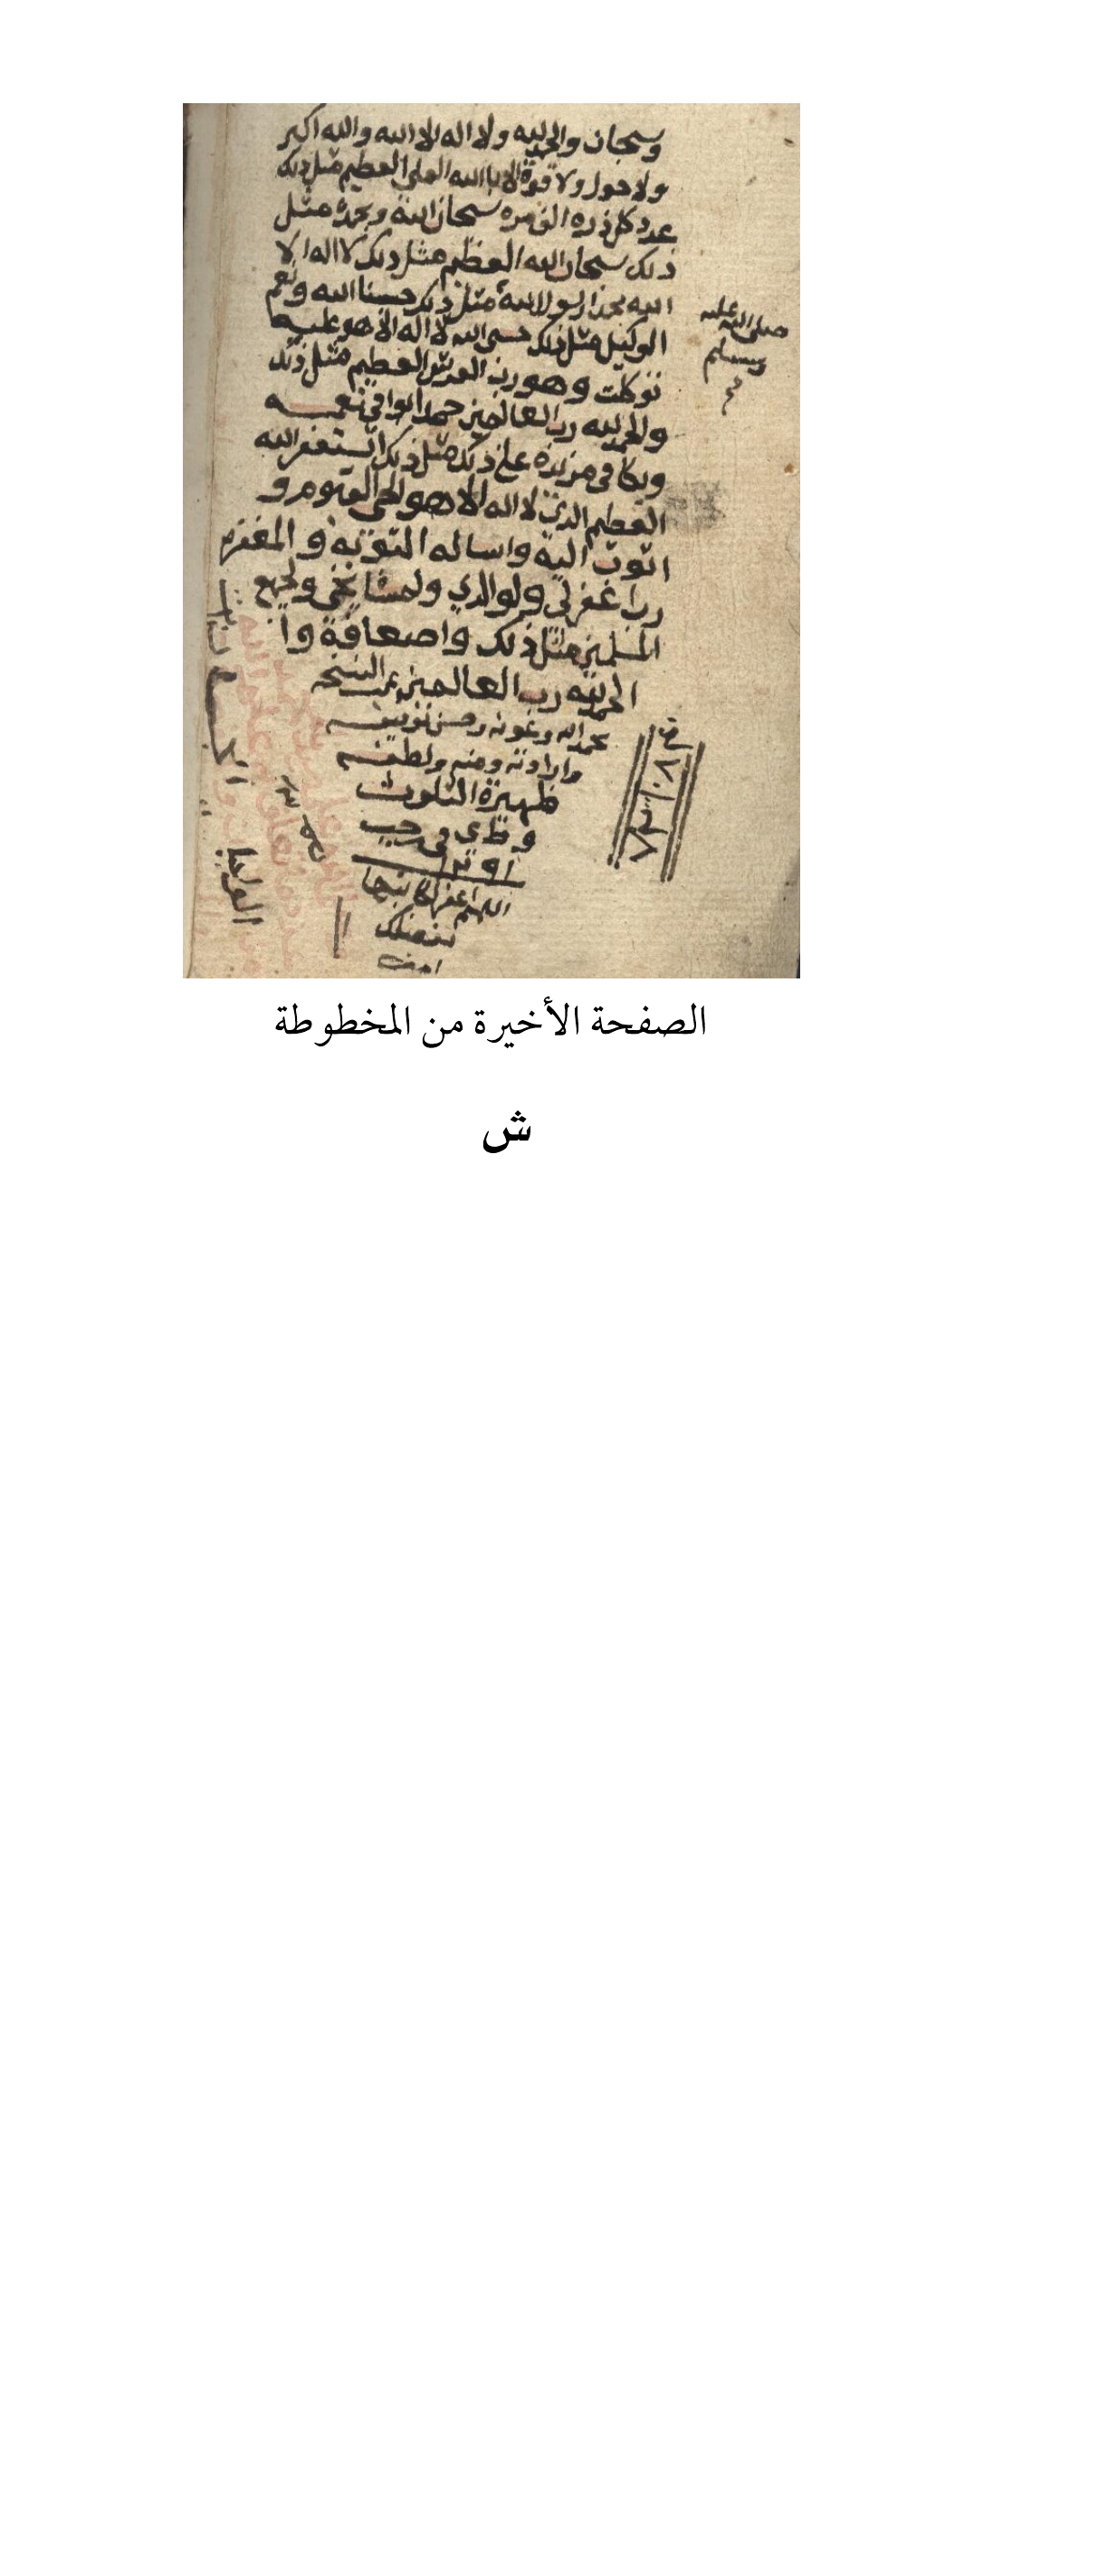 وسبحان والحمد لله ولا اله الا الله والله اكبر
ولا حول ولا قوة الا بالله العلي العظيم مثل ذلك
عدد كل ذره الف مره سبحان الله وبحمده مثل
ذلك سبحان الله العظيم مثل ذلك لا اله الا
الله محمد رسول الله مثل ذلك حسبنا الله ونعم
الوكيل مثل ذلك حسبي الله لا اله الا هو عليه
توكلت وهو رب العرش العظيم مثل ذلك
والحمد لله رب العالمين حمدا يوافي نعمه
ويكافي مزيده على ذلك مثل ذلك استغفر الله
العظيم الذي لا اله الا هو الحي القيوم و
اتوب اليه واساله التوبه و المغفره
رب اغفر لي ولوالدي ولمشايخي ولجميع
المسلمين مثل ذلك واضعافه وا
الحمد لله رب العالمين تمت النسخه
بحمد الله وعونه وحسن توفيقه
وارادته ومنه ولطفه
ظهيرة الثلوث
في رجب
اللهم اغفر لكاتبها
بفضلك
امين
صلى الله عليه
وسلم
الصفحة الأخيرة من المخطوطة
ش